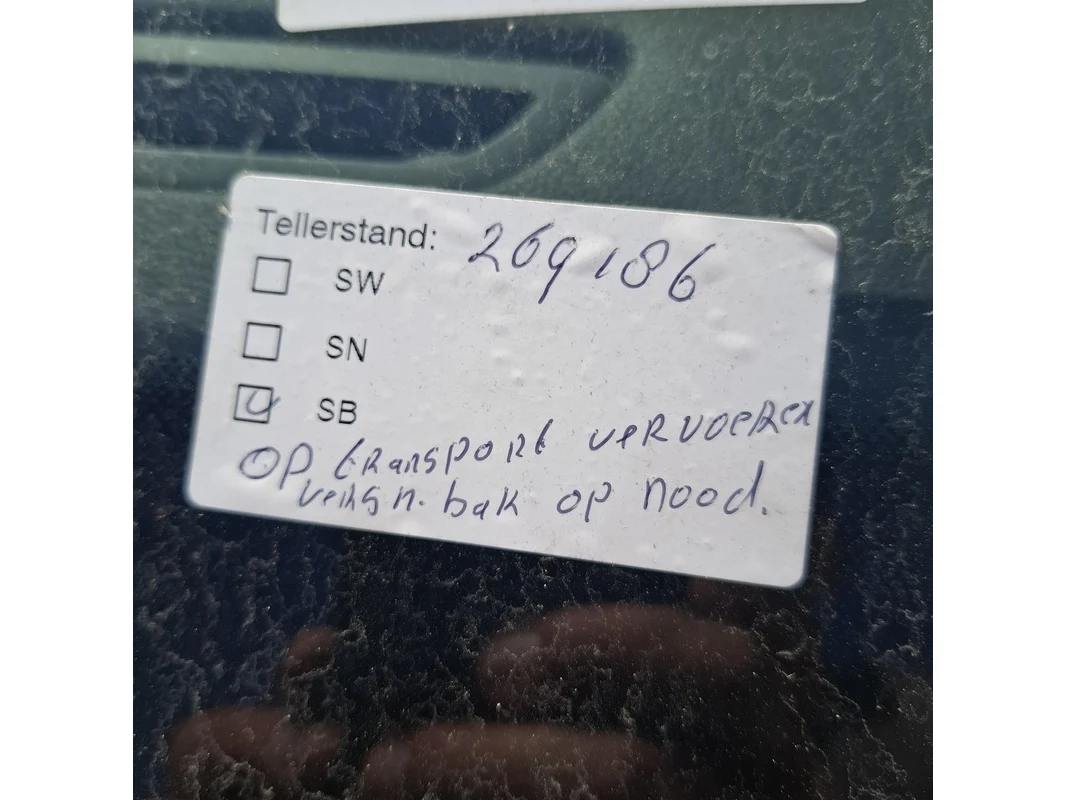 Tellerstand: 269186
SW
SN
SB
OP transport vervoeren
versn. bak op nood.